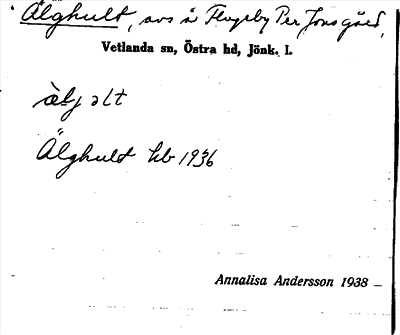 Älghult, avs å Flugeby Per Jons gård,
Vetlanda sn, Östra hd, Jönk. l.
Älghult hb 1936
Annalisa Andersson 1938